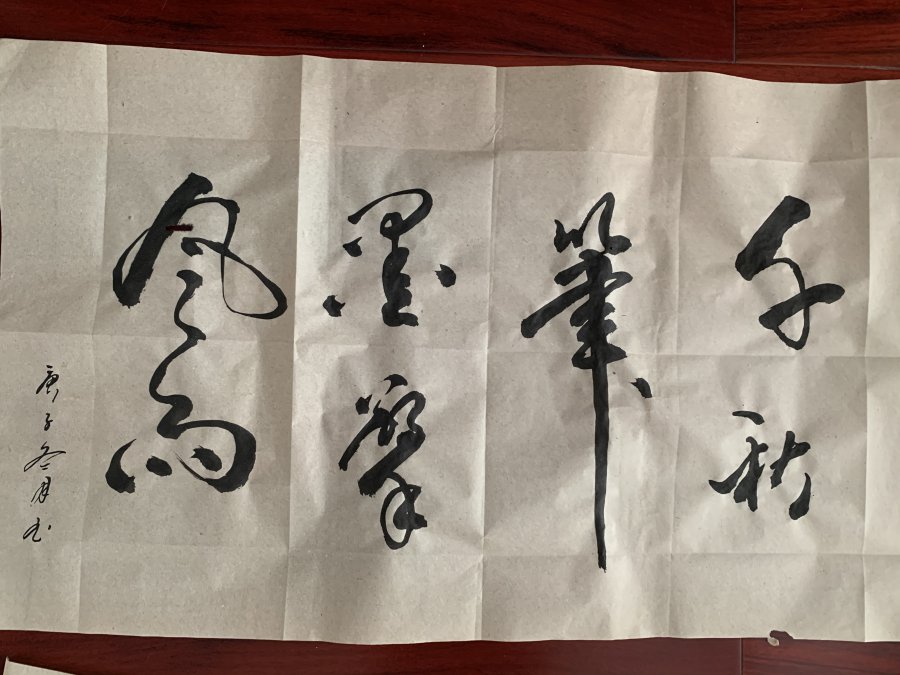 千秋
筆
墨驚
風雨
庚子冬月书